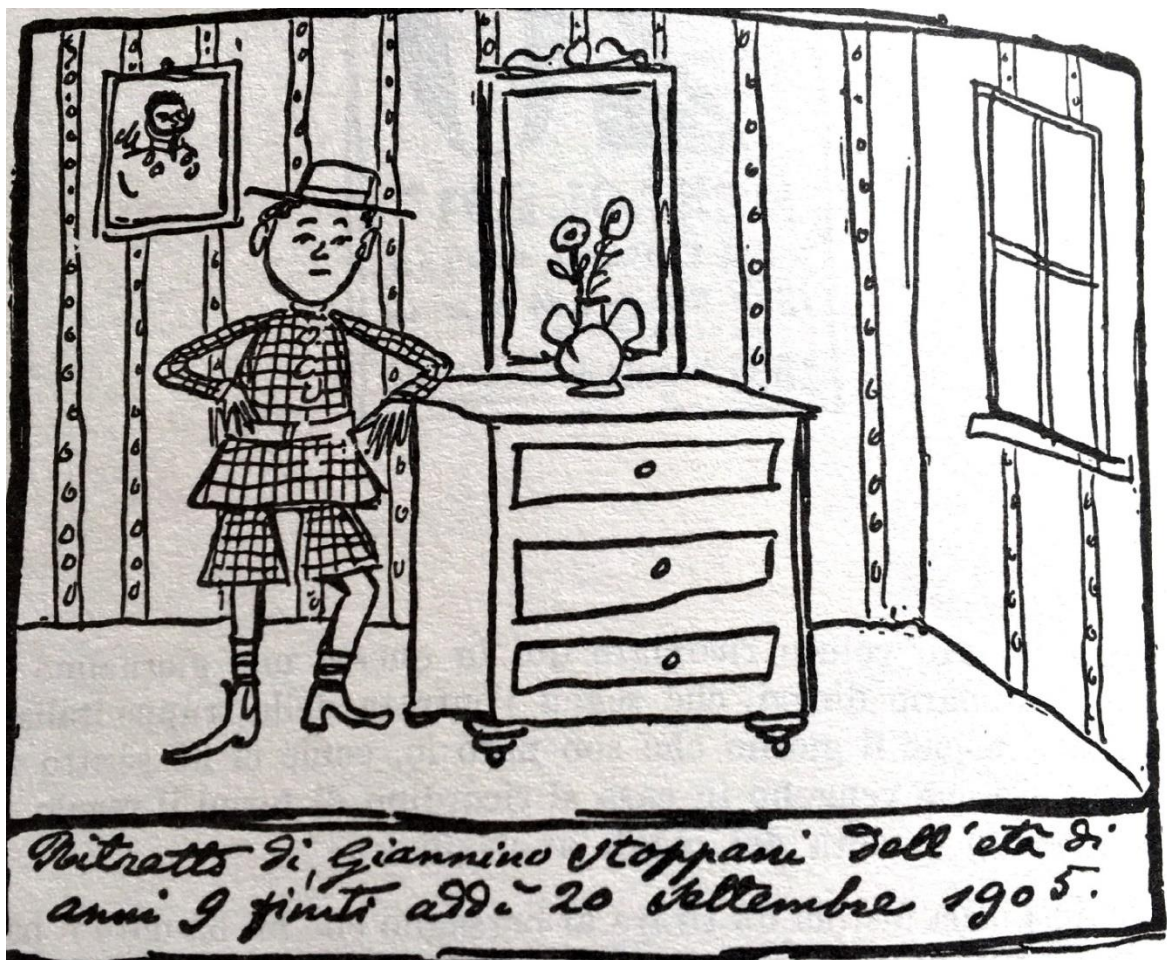 Ritratto di Giannino Stoppani dell'età di
anni 9 finiti addì 20 Settembre 1905.